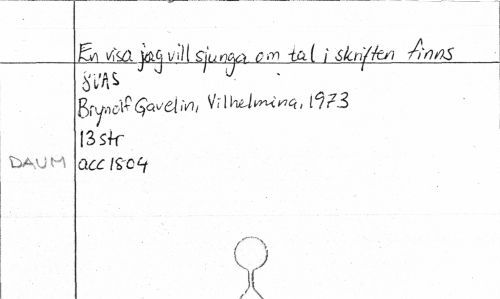 En visa jag vill sjunga om tal i skriften finns
SVAS
Brynolf Gavelin, Vilhelmina, 1973
13 str
DAUM acc 1804